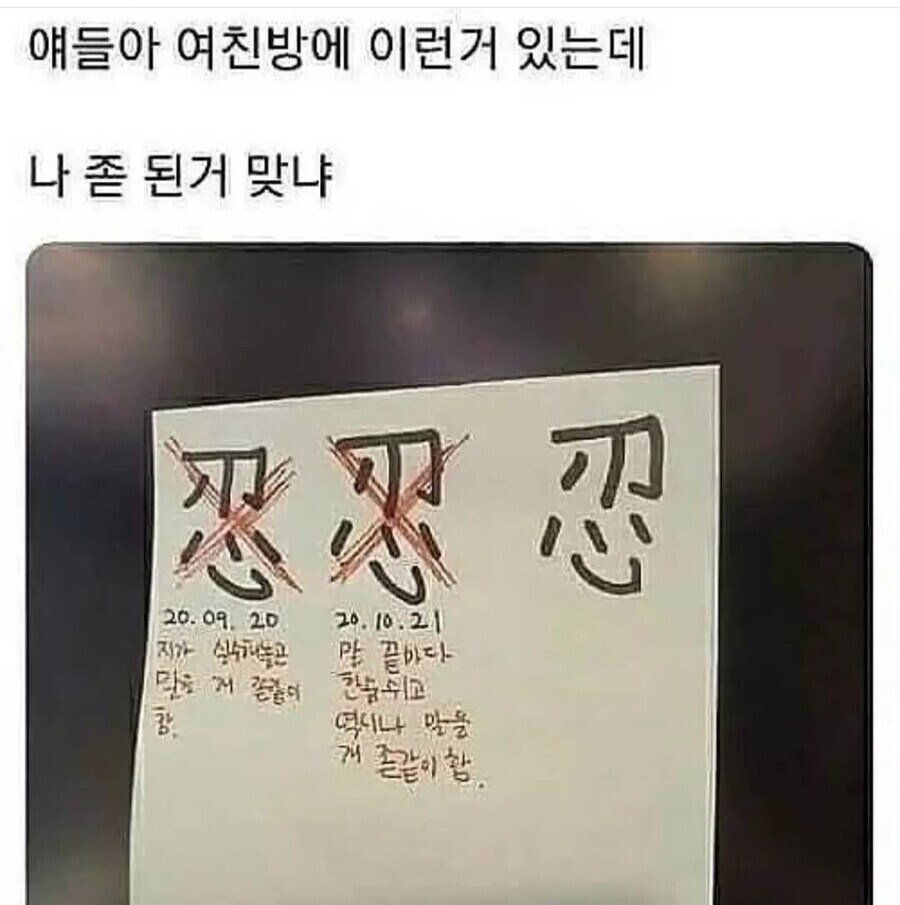 얘들아 여친방에 이런거 있는데
나 좆 된거 맞냐
忍 忍 忍
20.09.20
지가 실수해놓고
말을 개 좆같이
함.
20.10.21
말 끝마다
한숨쉬고
역시나 말을
개 좆같이 함.